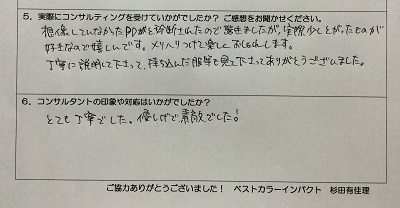 5. 実際にコンサルティングを受けていかがでしたか？ ご感想をお聞かせください。
想像していなかったPDがと診断されたので驚きましたが、実際少しとがったものが
好きなので嬉しいです。メリハリつけて楽しくおしゃれします。
丁寧に説明して下さって、持ち込んだ服等も見て下さってありがとうございました。
6. コンサルタントの印象や対応はいかがでしたか？
とても丁寧でした。優しげで素敵でした!
ご協力ありがとうございました！ ベストカラーインパクト 杉田有佳理